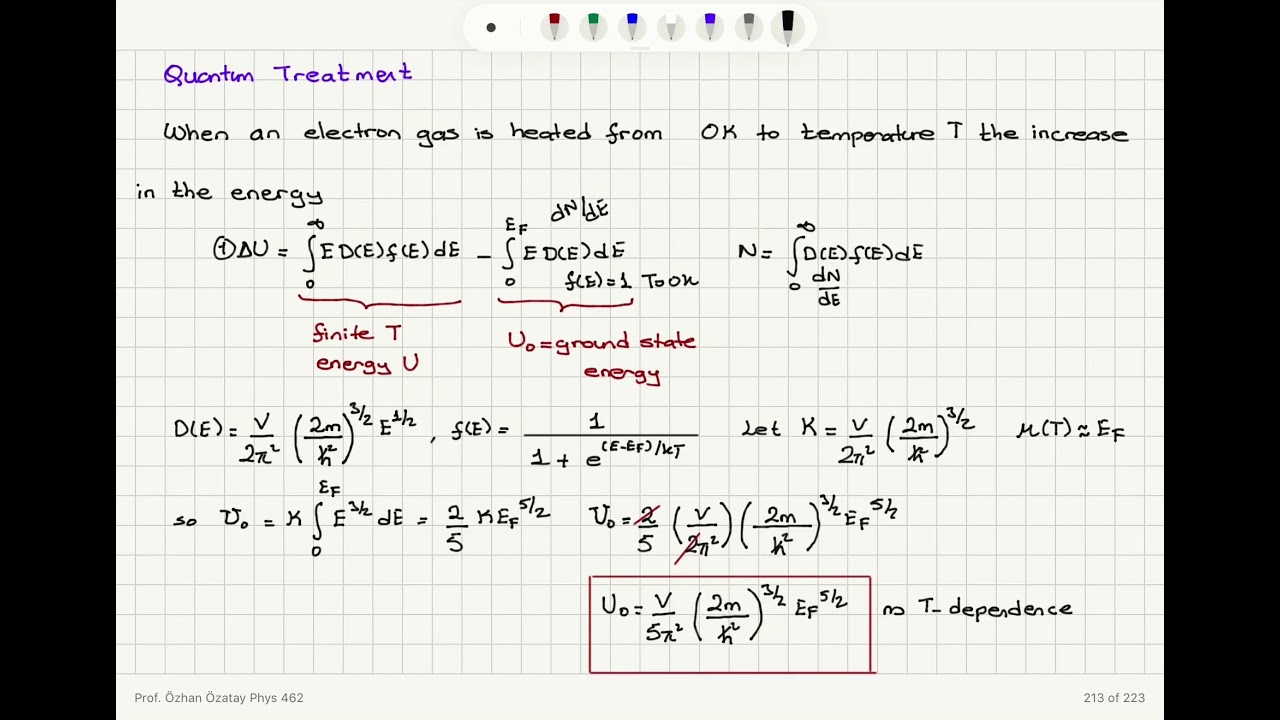 Quantum Treatment
When an electron gas is heated from 0K to temperature T the increase
in the energy
① ΔU = ∫₀^∞ E D(E) f(E) dE − ∫₀^{E_F} E D(E) dE    N = ∫₀^∞ D(E) f(E) dE
dN/dE
f(E) = 1 T→0K
dN/dE
finite T energy U
U₀ = ground state energy
D(E) = V/2π² (2m/ħ²)^{3/2} E^{1/2} , f(E) = 1/(1 + e^{(E−E_F)/kT})    Let K = V/2π² (2m/ħ²)^{3/2}    μ(T) ≈ E_F
so U₀ = K ∫₀^{E_F} E^{3/2} dE = 2/5 K E_F^{5/2}    U₀ = 2/5 (V/2π²) (2m/ħ²)^{3/2} E_F^{5/2}
U₀ = V/5π² (2m/ħ²)^{3/2} E_F^{5/2}    no T-dependence
Prof. Özhan Özatay Phys 462    213 of 223